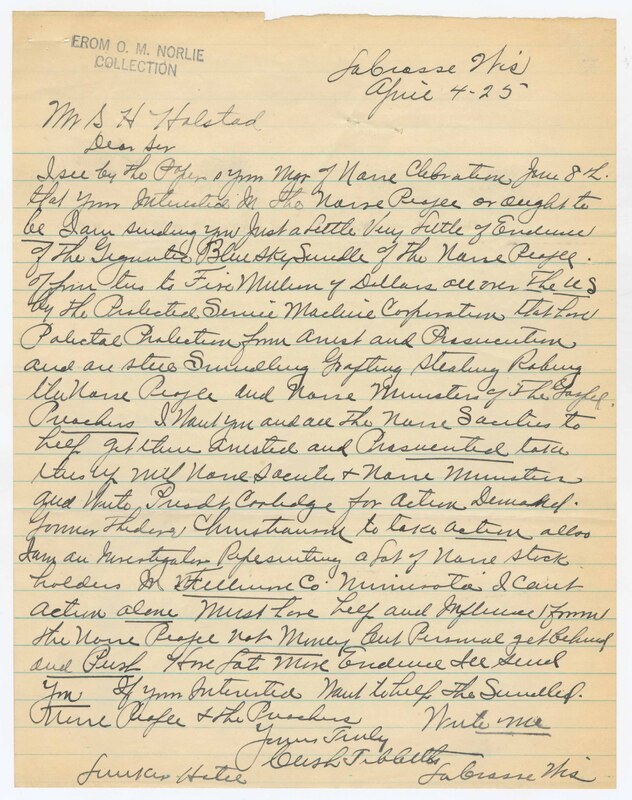 FROM O. M. NORLIE
COLLECTION
LaCrosse Wis
April 4-25
Mr S H Holstad
Dear Sir
I see by the Paper your Mgr of Norse Clebration June 8th.
that your Interested In the Norse People or ought to
be I am sending you Just a Little Very Little of Evidence
of The Gigantic Blue Sky Swindle of The Norse People.
of from two to Five Million of Dollars all over The US
by The Protected Service Machine Corporation that have
Political Protection from Arrest and Prosecution
and are still Swindling Grafting Stealing Robing
the Norse People and Norse Ministers of The Gospel.
Preachers I Want you and all the Norse Societies to
help get them Arrested and Prosecuted take
this up with Norse Societies + Norse Ministers
and Write Presdt Coolidge for Action Demand.
Christianson to take action allso
I am an Investigator Representing a Lot of Norse Stock
holders In Fillmore Co. Minnesota I cant
Action alone Must have help and Influence from
the Norse People not Money but Personal get behind
and Push Have Lots More Evidence Ile send
You If your Interested Want to help The Swindled.
Norse People + the Preachers Write me
Yours Truly
Tibbetts
Hotel LaCrosse Wis